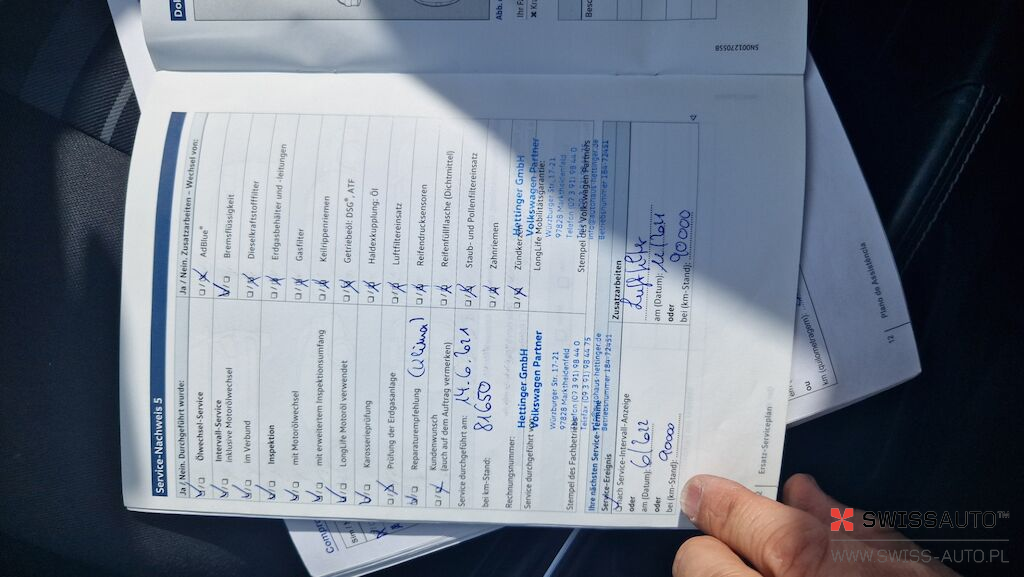 Service-Nachweis 5
Ja / Nein. Durchgeführt wurde:
Ölwechsel-Service
Intervall-Service
inklusive Motorölwechsel
im Verbund
Inspektion
mit Motorölwechsel
mit erweitertem Inspektionsumfang
LongLife Motoröl verwendet
Karosserieprüfung
Prüfung der Erdgasanlage
Reparaturempfehlung (Klima)
Kundenwunsch
(auch auf dem Auftrag vermerken)
Service durchgeführt am: 14.6.2021
bei km-Stand: 81650
Rechnungsnummer:
Service durchgeführt
Hettinger GmbH
Volkswagen Partner
Würzburger Str. 17-21
97828 Marktheidenfeld
Telefon (09 3 91) 98 44 0
Telefax (09 3 91) 98 44 75
Betriebsnummer 184-72451
Stempel des Fachbetriebs
Ihre nächsten Service-Termine
Service-Ereignis
nach Service-Intervall-Anzeige
oder
am (Datum): 6/2022
oder
bei (km-Stand): 90000
Ja / Nein. Zusatzarbeiten – Wechsel von:
AdBlue®
Bremsflüssigkeit
Dieselkraftstofffilter
Erdgasbehälter und -leitungen
Gasfilter
Keilrippenriemen
Getriebeöl: DSG®, ATF
Haldexkupplung: Öl
Luftfiltereinsatz
Reifendrucksensoren
Reifenfüllflasche (Dichtmittel)
Staub- und Pollenfiltereinsatz
Zahnriemen
Zündkerzen
LongLife Mobilitätsgarantie:
Hettinger GmbH
Volkswagen Partner
Würzburger Str. 17-21
97828 Marktheidenfeld
Telefon (09 3 91) 98 44 0
info@autohaus-hettinger.de
Betriebsnummer 184-72451
Stempel des Volkswagen Partners
Zusatzarbeiten
am (Datum):
oder
bei (km-Stand): 90000
Ersatz-Serviceplan
12
Plano de Assistência
ou
km (quilometragem)
SN00127055B
Abb.
Ihr Fa
SWISSAUTO™
WWW.SWISS-AUTO.PL